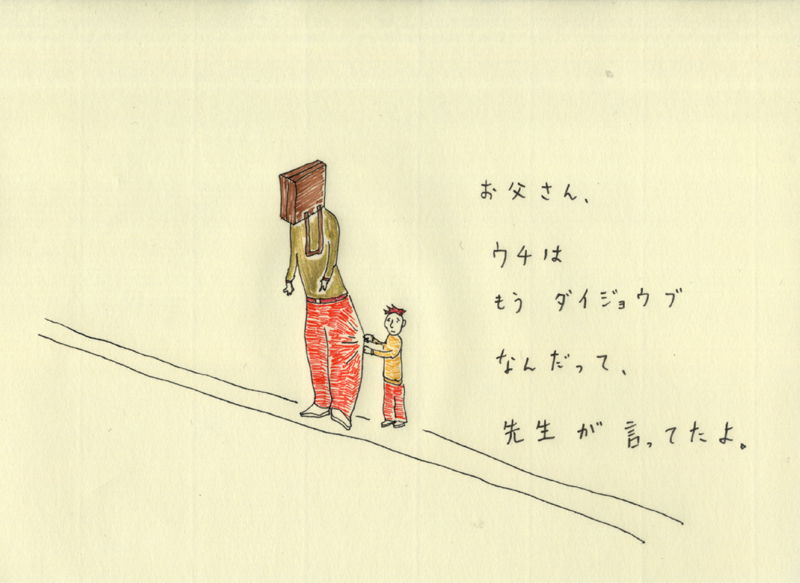 お父さん、
ウチは
もう ダイジョウブ
なんだって、
先生が 言ってたよ。